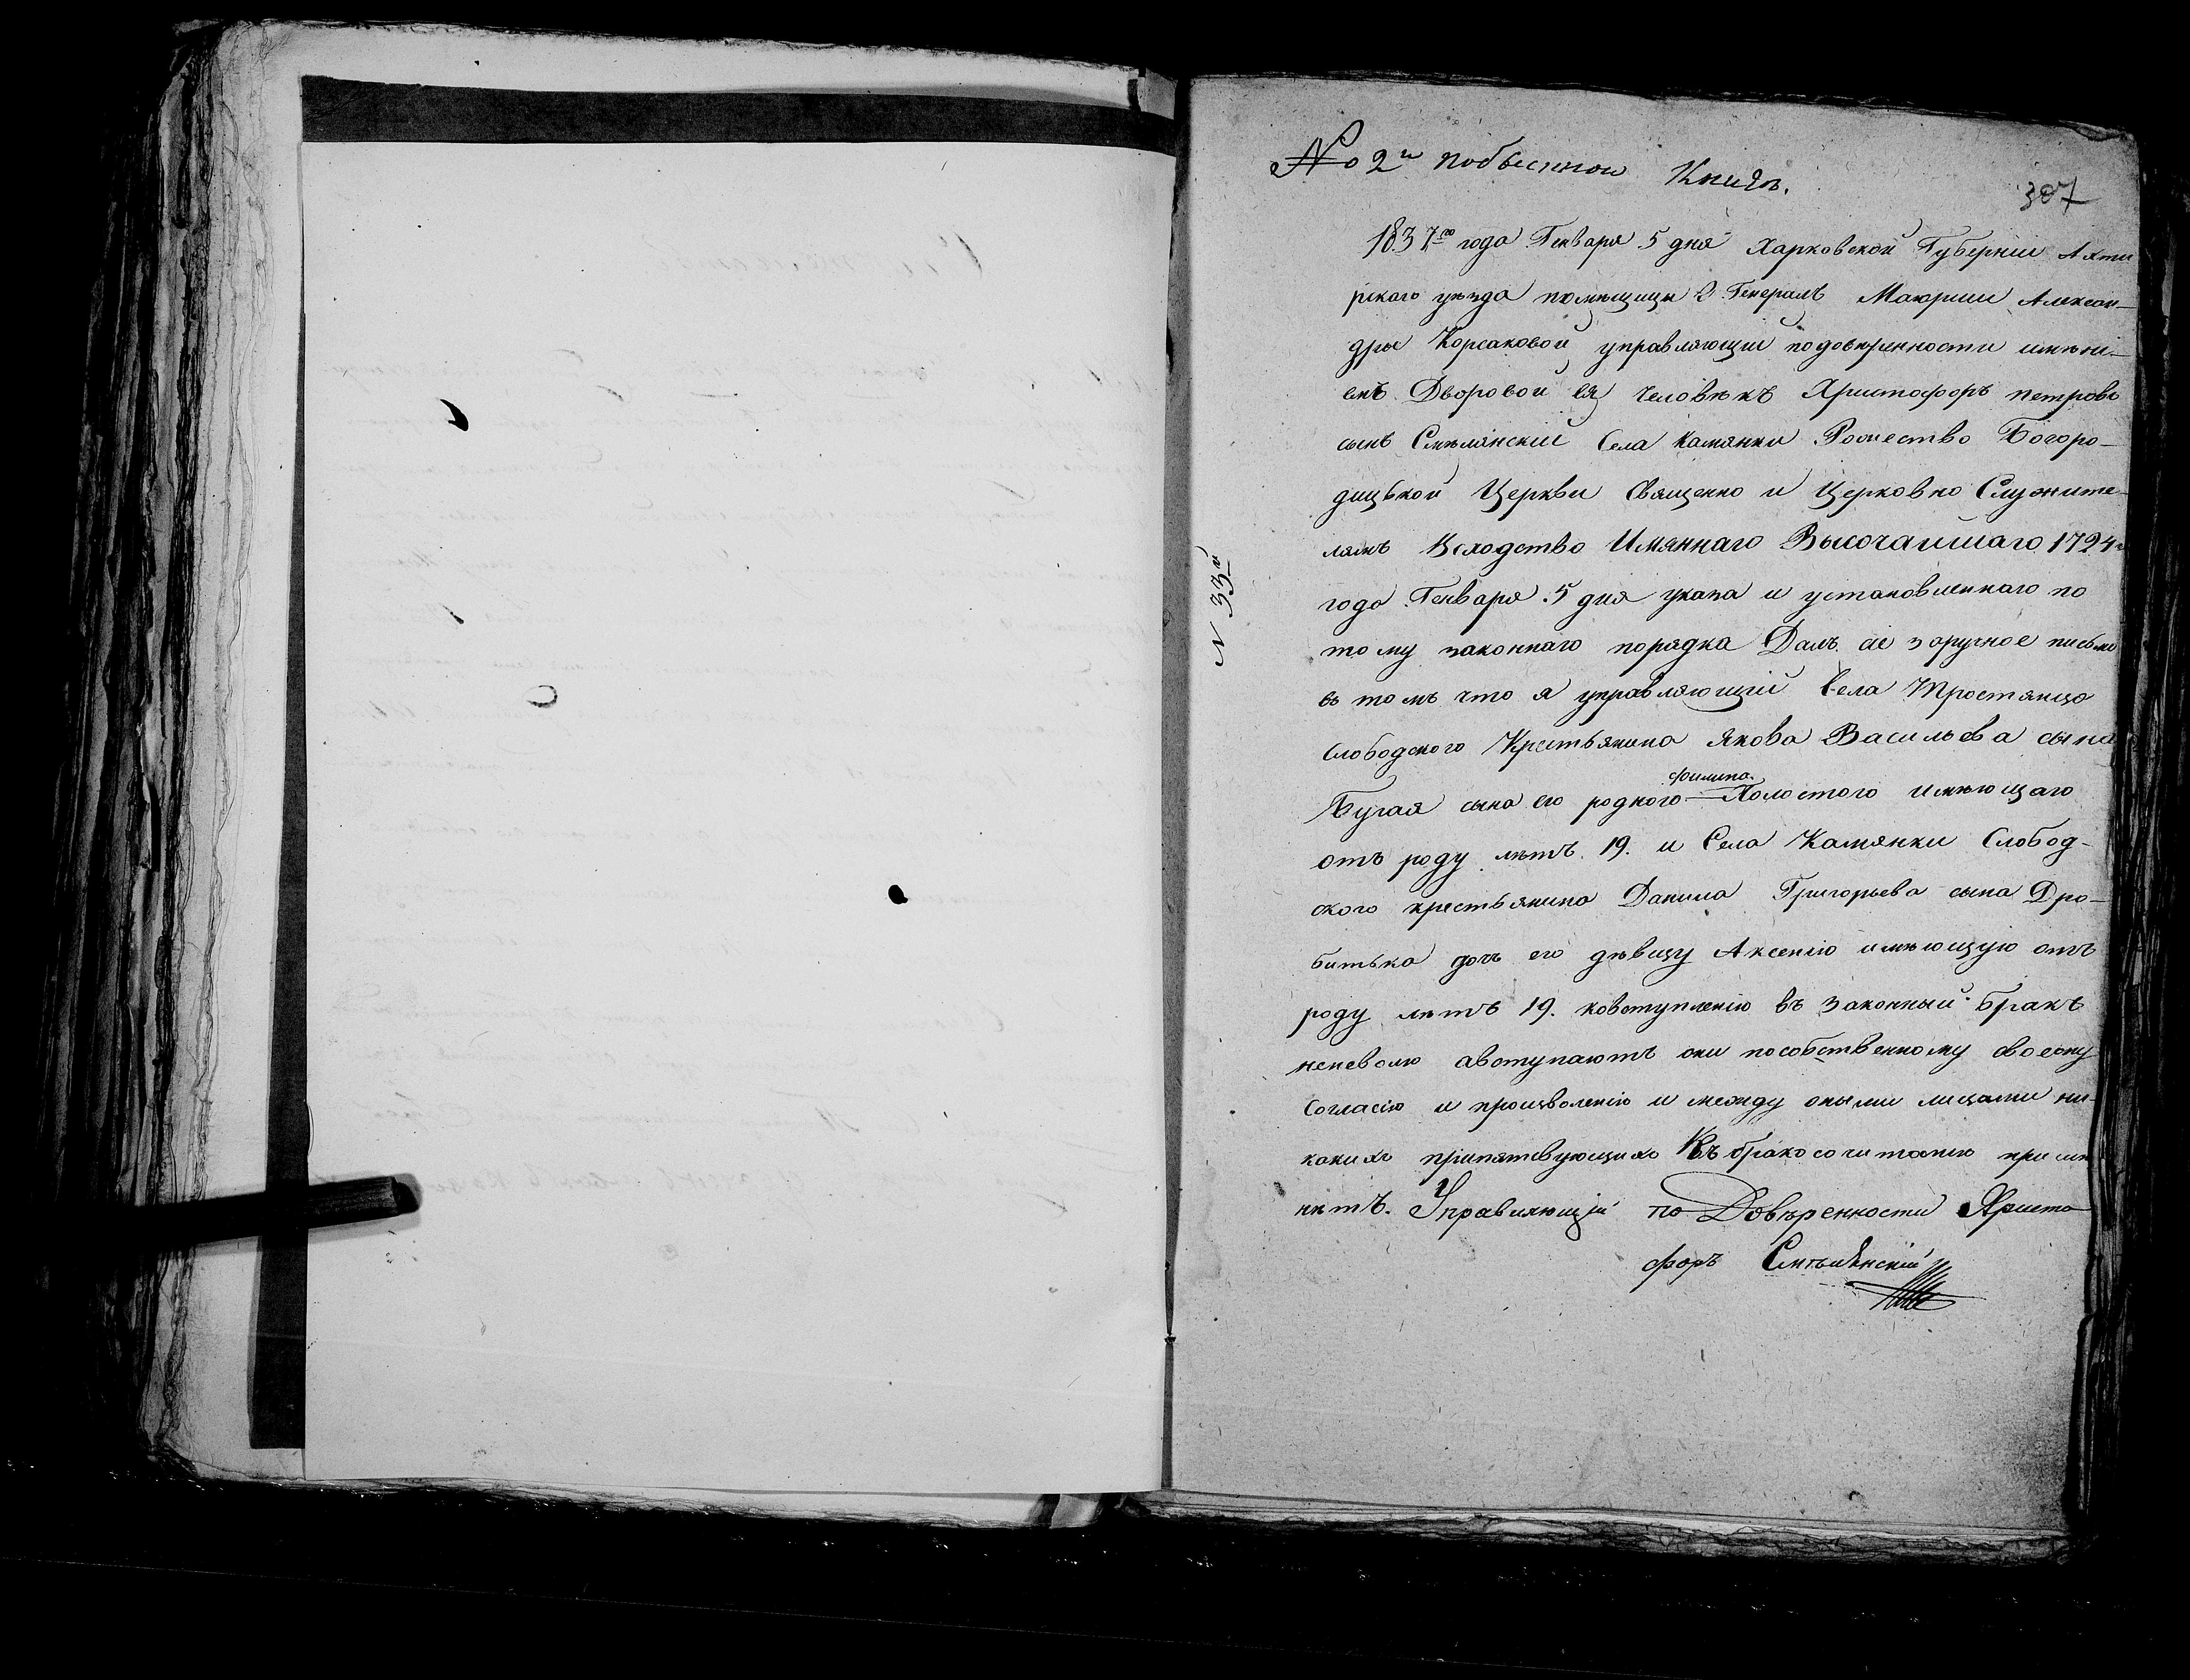 № 2й пообыскной Книгѣ.
307
1837го года Генваря 5 дня Харковской Губерніи Ахти
рскаго уѣзда помѣщицы Генералъ Маюрши Алексан-
дры Корсаковой управляющій подовѣренности имѣні-
емъ Дворовой ея человѣкъ Христофоръ петровъ
сынъ Смѣлянскій Села Камянки Рожество Богоро-
дицькой Церкви Священно и Церковно Служите-
лямъ Всходство Имяннаго Высочайшаго 1724го
года Генваря 5 дня указа и установленнаго по
тому законнаго порядка Далъ сіе заручное письмо
въ томъ что я управляющій Села Тростянца
Слободского Крестьянина Якова Васильева сына
филипа
Бугая сына его родного Холостого имѣющаго
отъ роду лѣтъ 19. и Села Камянки Слобод-
ского крестьянина Данила Григорьева сына Дро-
битька дочь его дѣвицу Аксенію имѣющую отъ
роду лѣтъ 19. ковступленію въ законный бракъ
неневолю авступаютъ они пособственному своему
Согласію и произволенію и между оными лицами ни-
какихъ припятсвующихъ Къ бракосочитанію причин
нѣтъ. Управляющій по Довѣренности Христо
форъ Смѣлянскій
N 33й